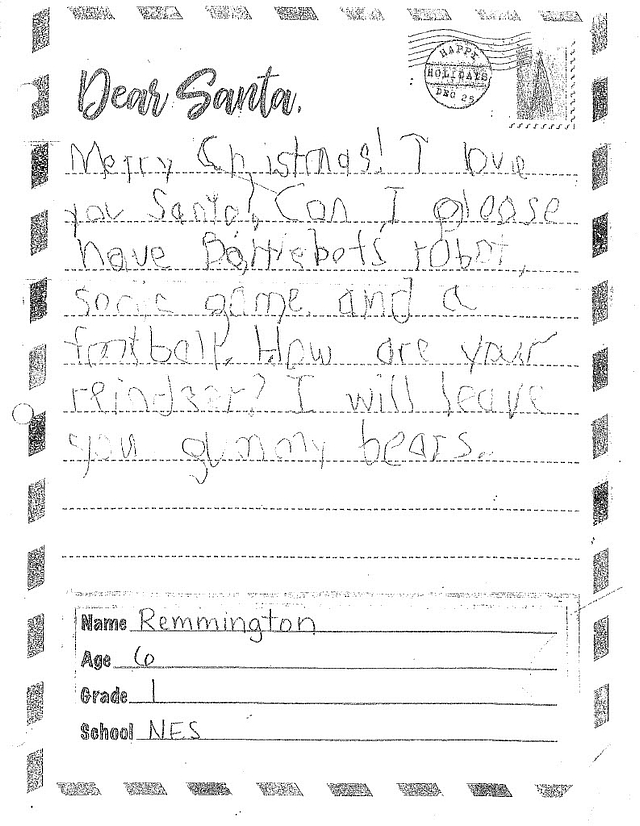 HAPPY
HOLIDAYS
DEC 25
Dear Santa,
Merry Christmas! I love
you Santa! Can I please
have Battlebots robot,
sonic game and a
football. How are your
reindeer? I will leave
you gummy bears.
Name Remmington
Age 6
Grade 1
School NES